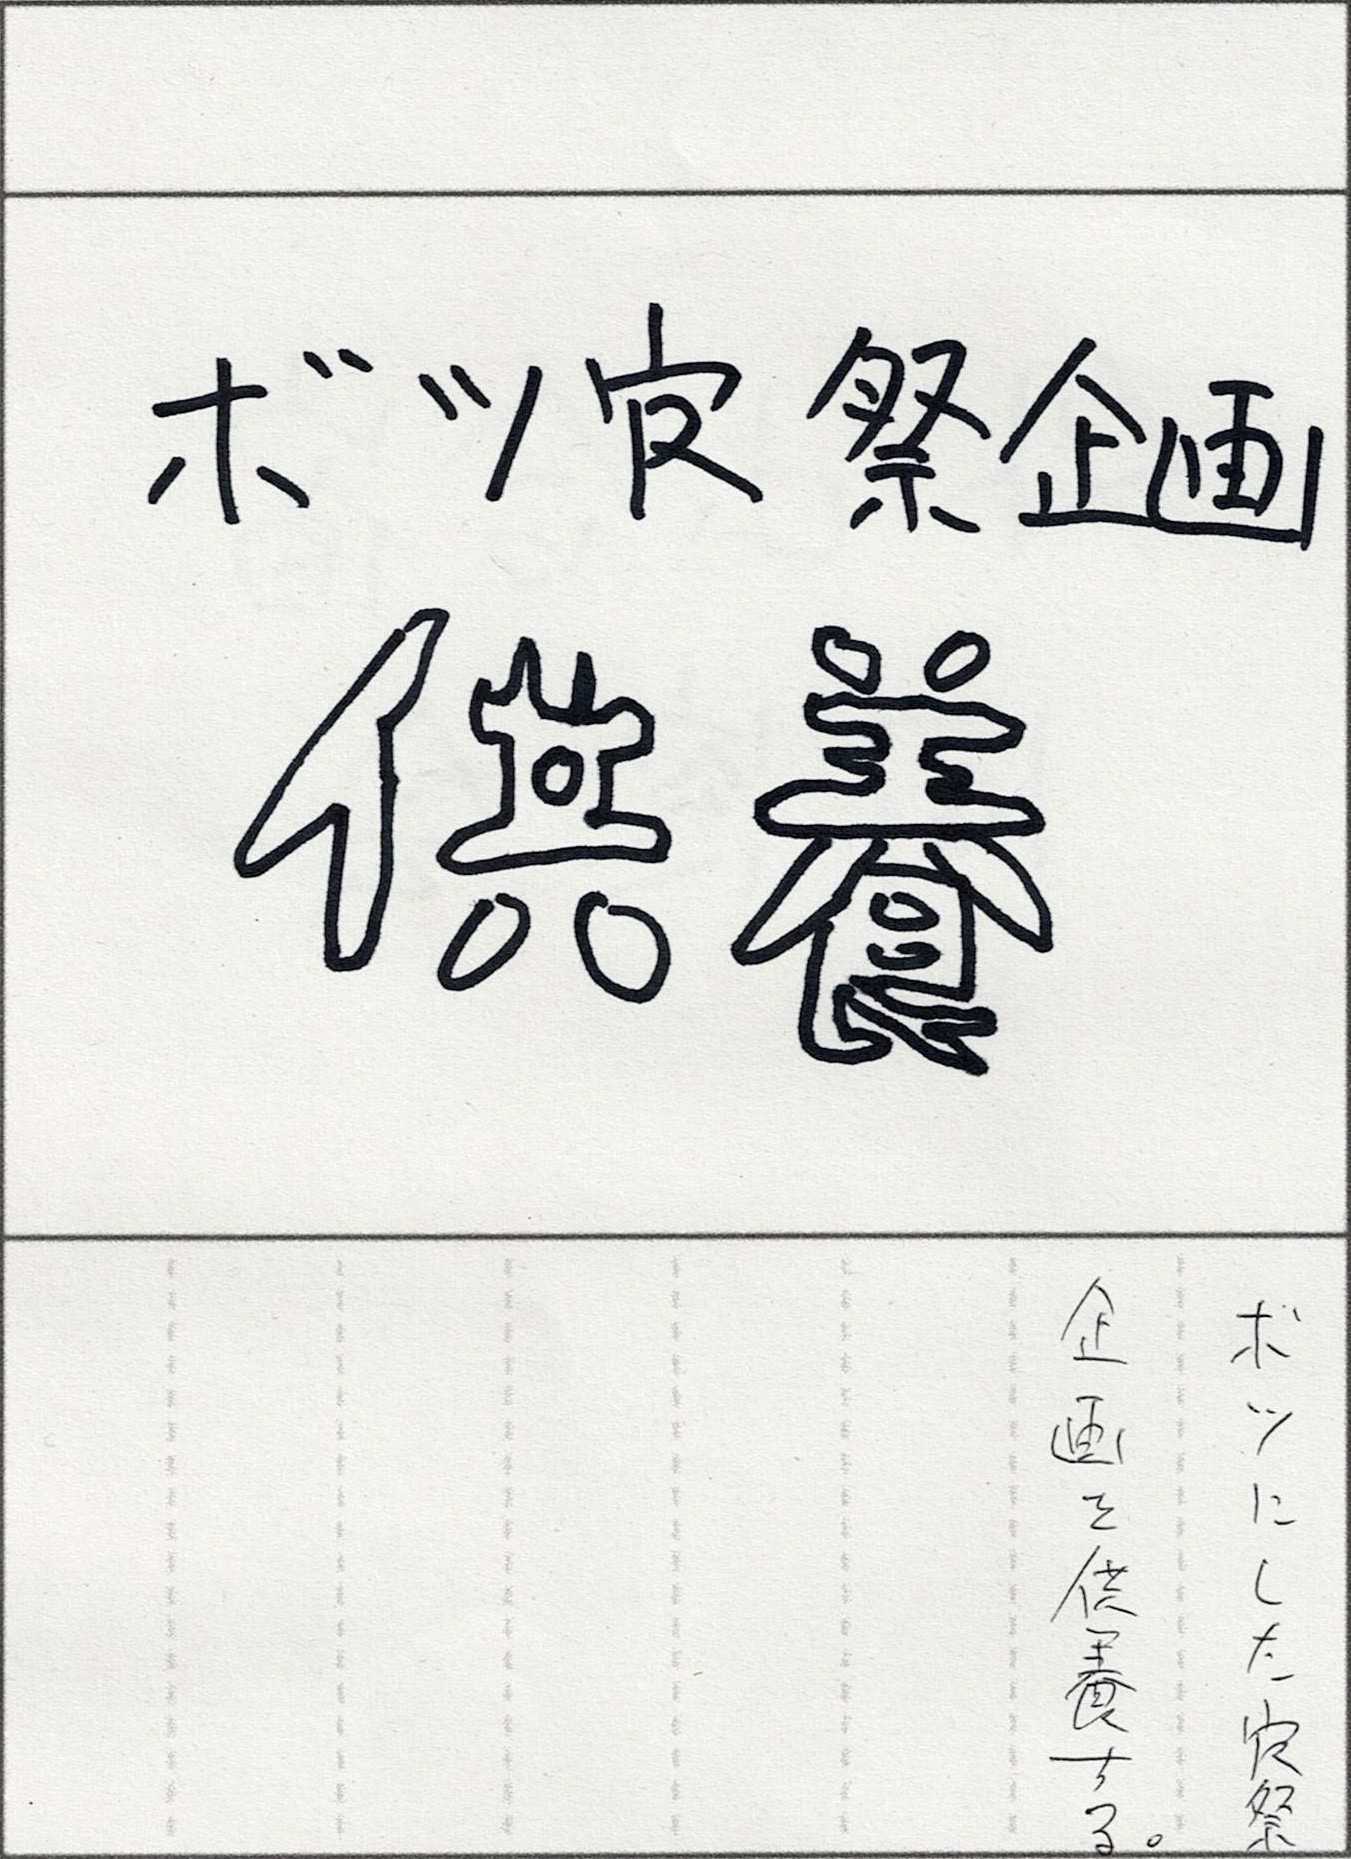 ボツ寮祭企画
供養
ボツにした寮祭
企画を供養する。